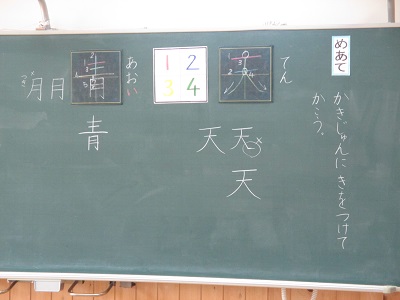 めあて
かきじゅんに きをつけて
かこう。
てん
天
1 2
3 4
天
天
天
あおい
青
青
月
月
つき